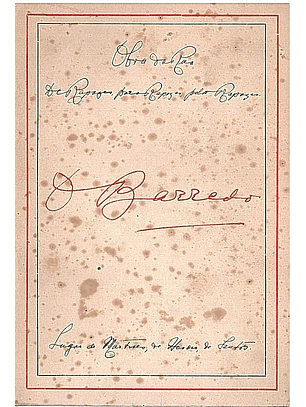 Obra da Rua
De Rapazes, para Rapazes, pelos Rapazes.
O Barredo
Lugar de Mártires, de Heróis, de Santos.